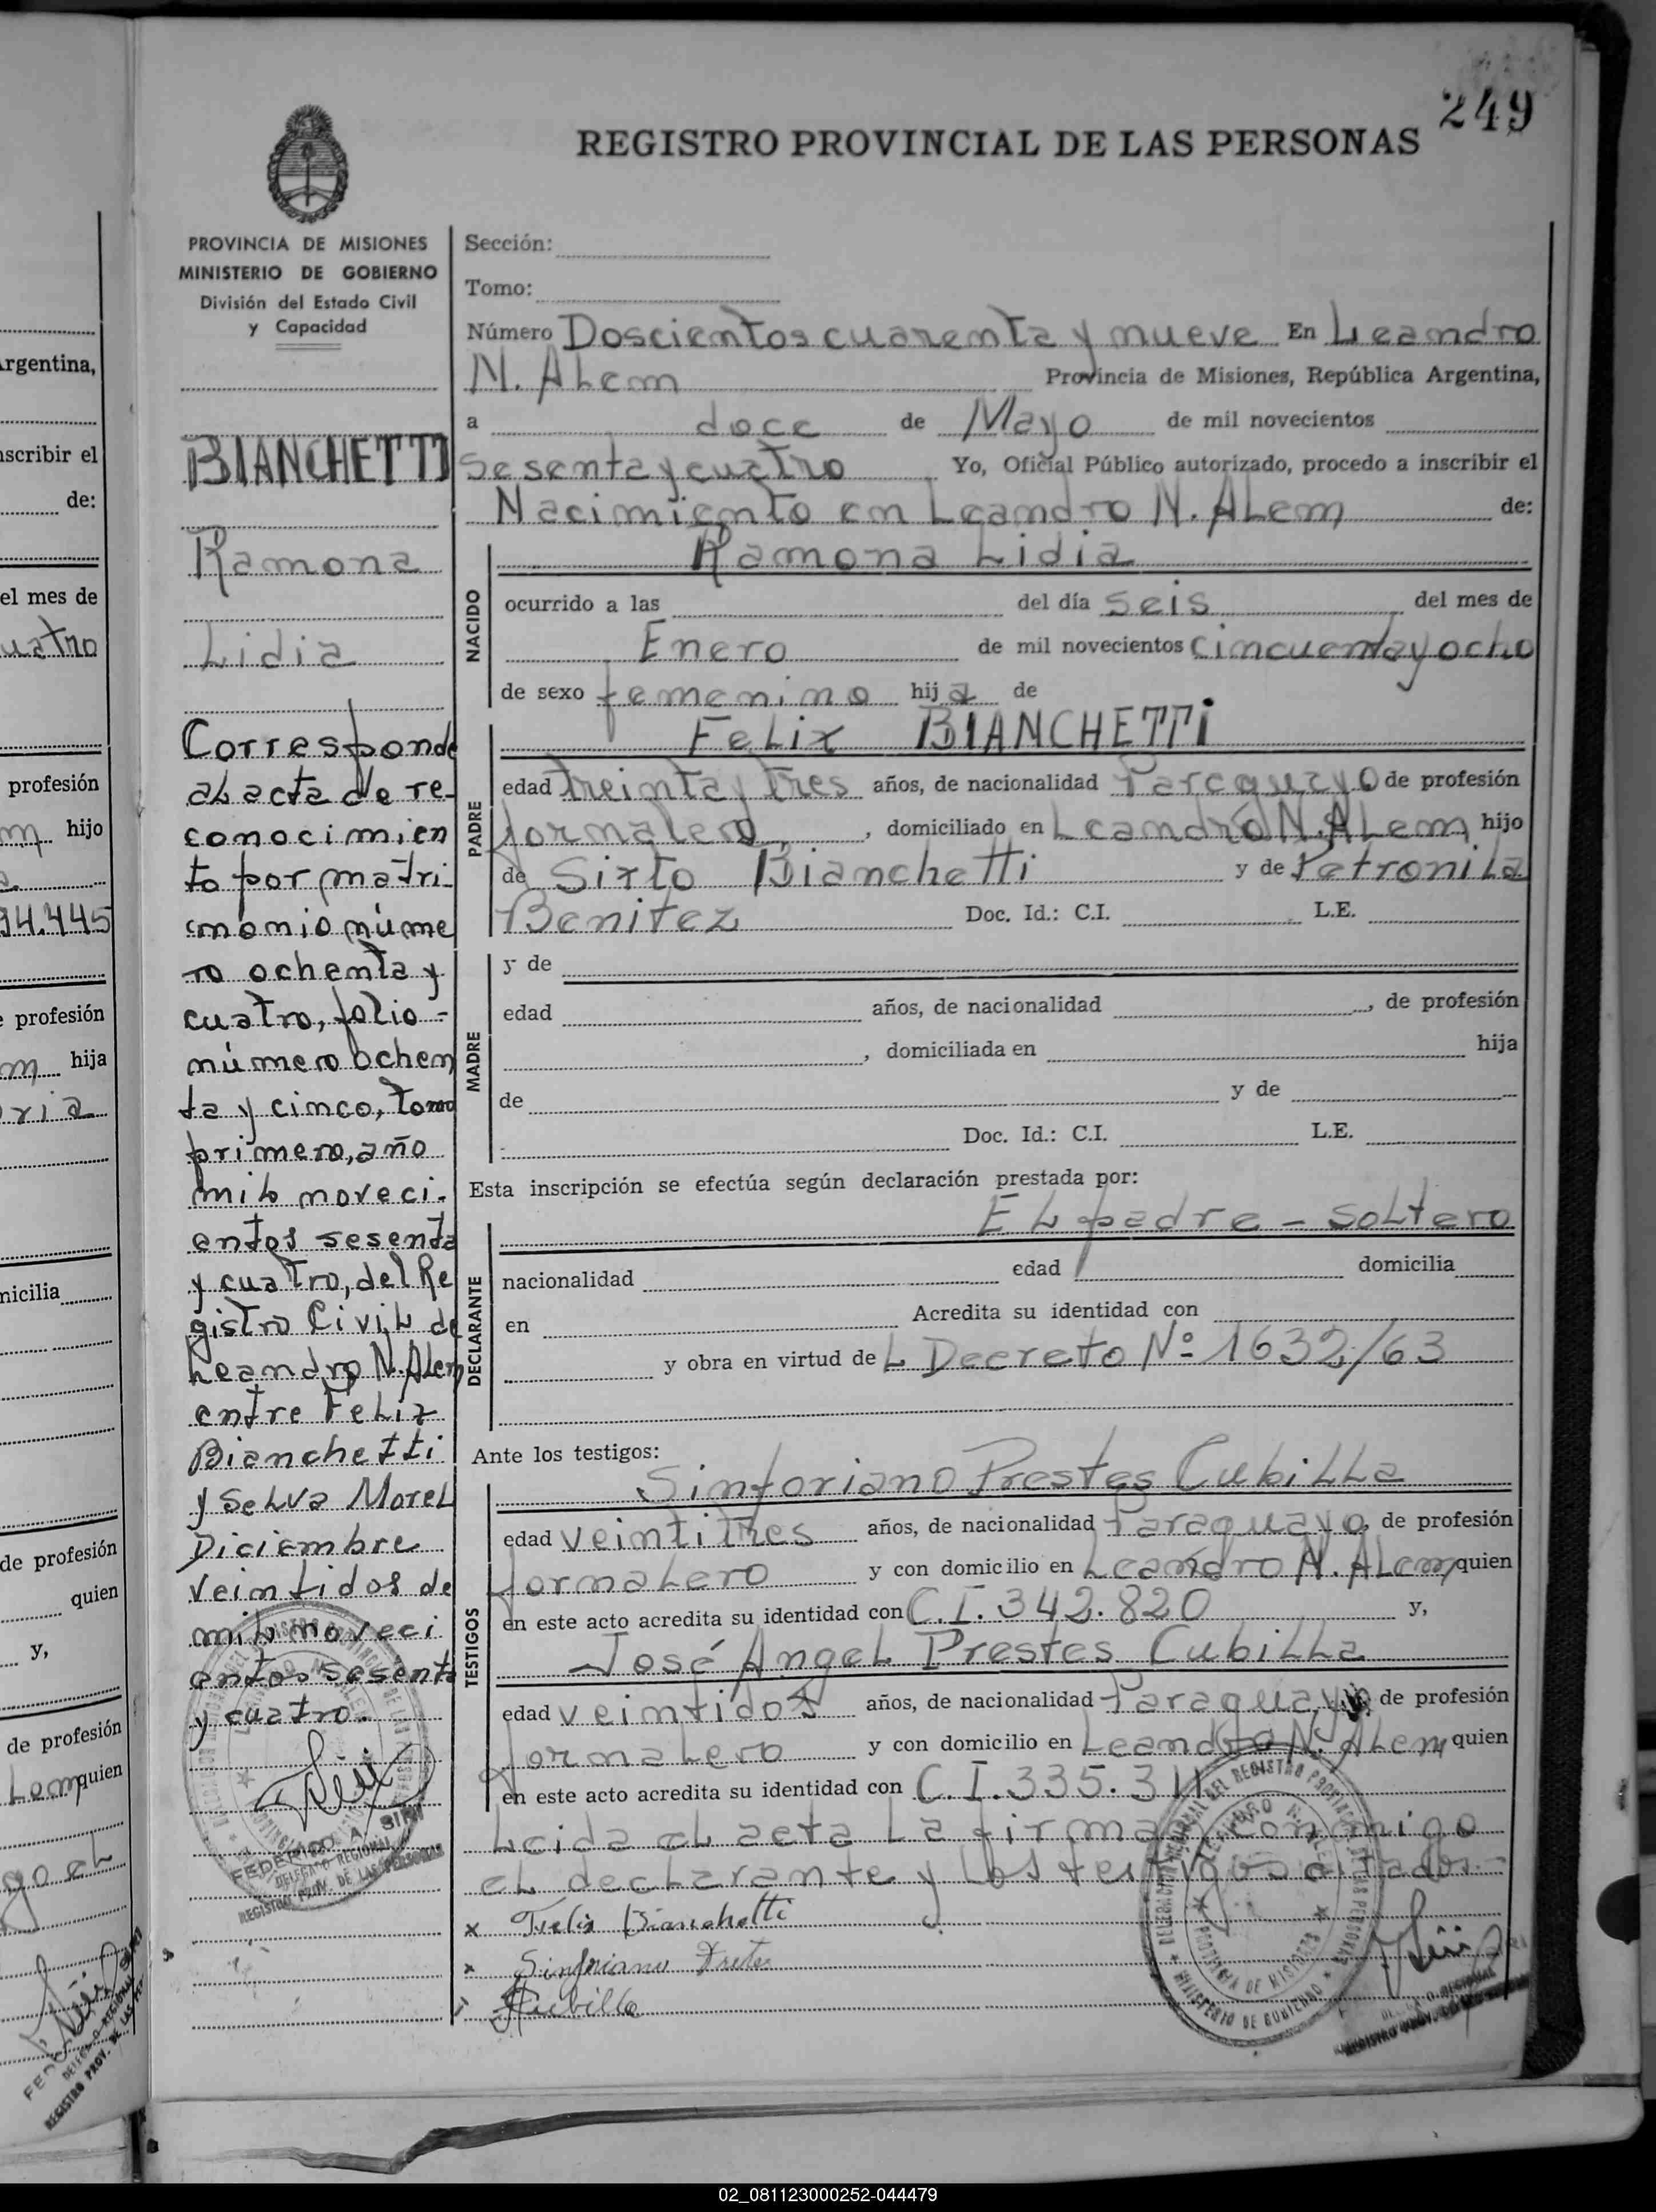 249
REGISTRO PROVINCIAL DE LAS PERSONAS
PROVINCIA DE MISIONES
MINISTERIO DE GOBIERNO
División del Estado Civil
y Capacidad
BIANCHETTI
Ramona
Lidia
Corresponde
al acta de re-
conocimien
to por matri-
monio núme
ro ochenta y
cuatro, folio -
número ochen
ta y cinco, tomo
primero, año
mil noveci-
entos sesenta
y cuatro, del Re
gistro Civil de
Leandro N. Alem
entre Feliz
Bianchetti
y Selva Morel
Diciembre
veintidos de
mil noveci
entos sesenta
y cuatro.
FEDERICO A.
DELEGADO REGIONAL
REGISTRO PROV. DE LAS PERSONAS
Sección:
Tomo:
Número Doscientos cuarenta y nueve En Leandro
N. Alem Provincia de Misiones, República Argentina,
a doce de Mayo de mil novecientos
sesenta y cuatro Yo, Oficial Público autorizado, procedo a inscribir el
Nacimiento en Leandro N. Alem de:
NACIDO
Ramona Lidia
ocurrido a las del día seis del mes de
Enero de mil novecientos cincuenta y ocho
de sexo femenino hija de
PADRE
Felix BIANCHETTi
edad treinta y tres años, de nacionalidad Paraguayo de profesión
Jornalero, domiciliado en Leandro N. Alem hijo
de Sixto Bianchetti y de Petronila
Benitez Doc. Id.: C.I. L.E.
MADRE
y de
edad años, de nacionalidad , de profesión
, domiciliada en hija
de y de
Doc. Id.: C.I. L.E.
Esta inscripción se efectúa según declaración prestada por:
DECLARANTE
El padre - soltero
nacionalidad edad domicilia
en Acredita su identidad con
y obra en virtud del Decreto Nº 1632/63
Ante los testigos:
TESTIGOS
Sinforiano Prestes Cubilla
edad veintitres años, de nacionalidad Paraguayo, de profesión
Jornalero y con domicilio en Leandro N. Alem quien
en este acto acredita su identidad con C.I. 342.820 y,
José Angel Prestes Cubilla
edad veintidos años, de nacionalidad Paraguayo de profesión
Jornalero y con domicilio en Leandro N. Alem quien
en este acto acredita su identidad con C.I. 335.311
Leida el acta la firman conmigo
el declarante y los testigos citados.-
x Felix Bianchetti
x Sinforiano Prestes
Cubilla
DELEGACION REGIONAL DEL REGISTRO PROVINCIAL DE LAS PERSONAS
LEANDRO N. ALEM
PROVINCIA DE MISIONES
MINISTERIO DE GOBIERNO
Argentina,
nscribir el
de:
el mes de
uatro
profesión
m hijo
94.445
profesión
m hija
oria
micilia
de profesión
quien
y,
de profesión
Lem quien
go el
02_081123000252-044479